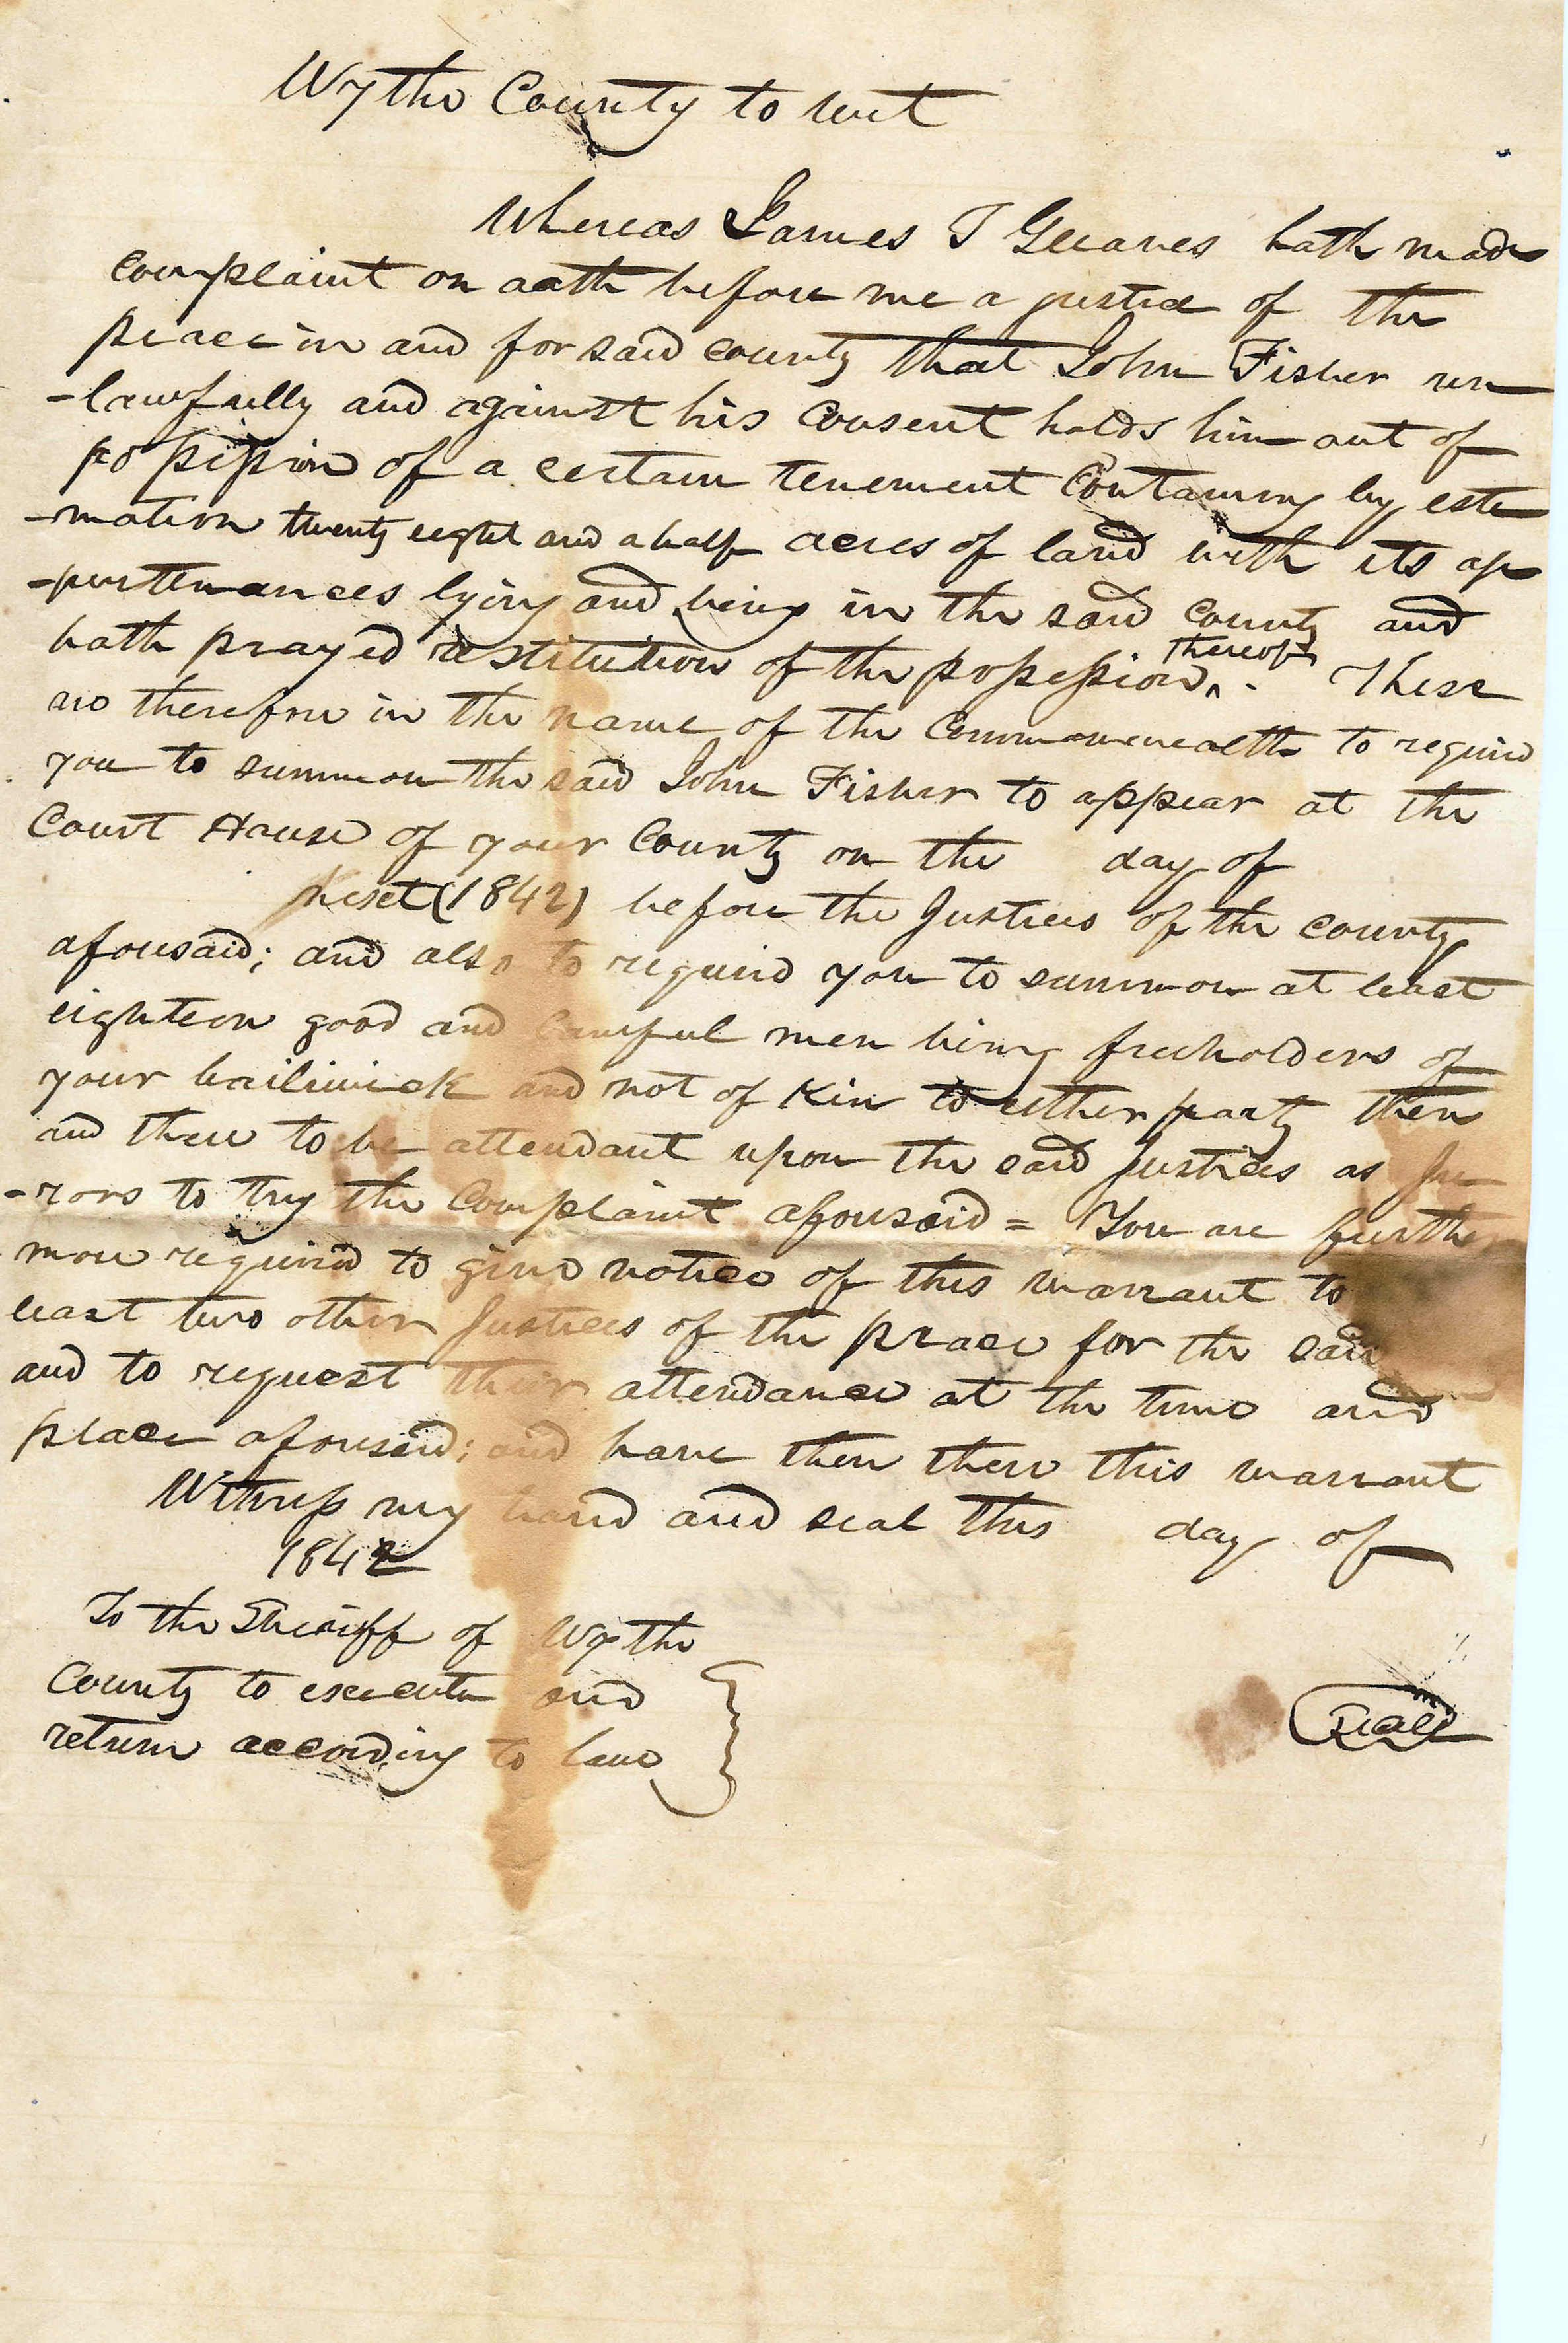 Wythe County to wit
Whereas James T Gleaves hath made
complaint on oath before me a justice of the
peace in and for said county that John Fisher un
-lawfully and against his consent holds him out of
possession of a certain tenement Containing by esti
-mation twenty eight and a half acres of land with its ap
-purtenances lying and being in the said County and
hath prayed restitution of the possession thereof. These
are therefore in the name of the Commonwealth to require
you to summon the said John Fisher to appear at the
Court House of your County on the day of
next (1842) before the Justices of the county
aforesaid; and also to require you to summon at least
eighteen good and lawful men being freeholders of
your bailiwick and not of kin to either party then
and there to be attendant upon the said Justices as Ju
-rors to try the Complaint aforesaid = You are further
more required to give notice of this warrant to
least two other Justices of the peace for the said
and to request their attendance at the time and
place aforesaid; and have then there this warrant
Witness my hand and seal this day of
1842
To the Sheriff of Wythe
County to execute and
return according to law
Seal